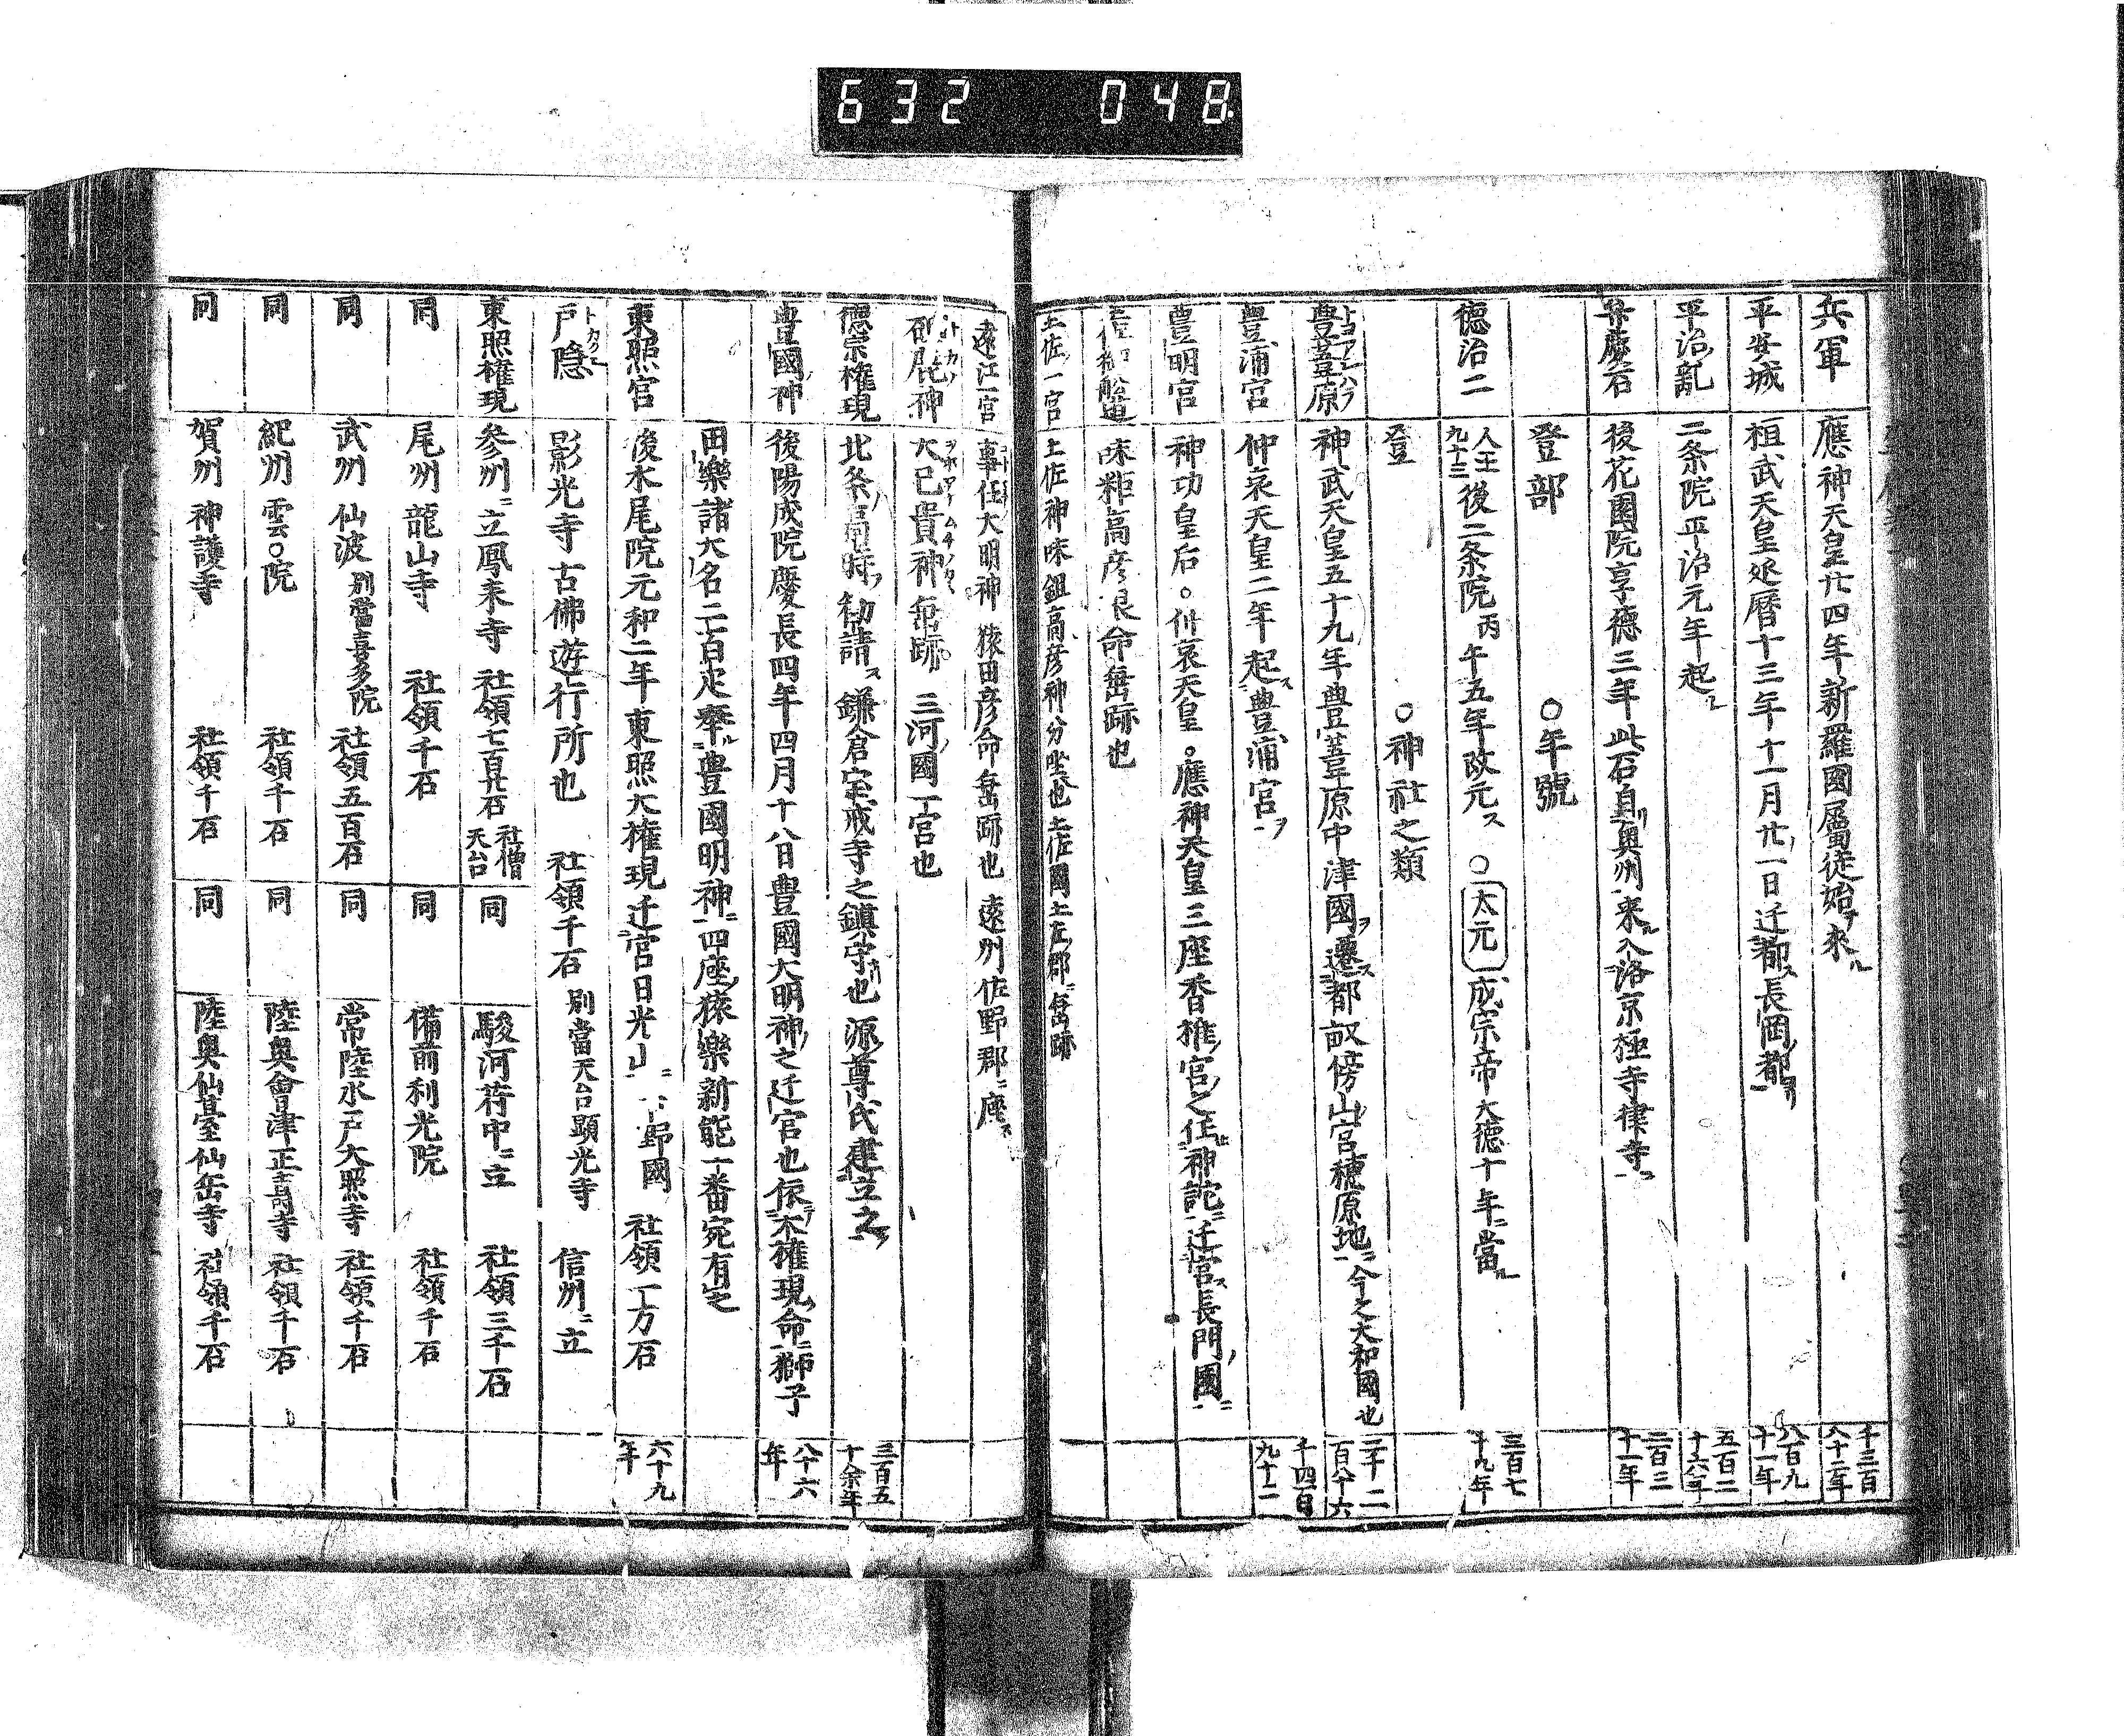 632 048
兵軍 應神天皇廿四年新羅國屬徒始テ來ル 千三百八十二年
平安城 桓武天皇延暦十三年十一月廿一日迁都ス長岡都 八百九十一年
平治乱 二条院平治元年起ル 五百二十六年
弁慶石 後花園院享德三年此石自奥州来入洛京極寺律寺 二百三十一年
登部 ○年號
德治二 人王九十三後二条院丙午五年改元ス ○太元成宗帝大德十年當ル 三百七十九年
登 ○神社之類
豊葦原 神武天皇五十九年豊葦原中津國ヲ遷ス都畝傍山宮穂原地ニ今之大和國也 二千二百八十六
豊浦宮 仲哀天皇二年起ス豊浦宮ヲ 千四百九十二
豊明宮 神功皇后○仲哀天皇○應神天皇三座香推宮之任神託ニ迁宮ス長門國ニ
土佐御船遊 味耜高彦根命垂跡也
土佐一宮 土佐神味鉏高彦神分坐也土佐國土左郡ニ垂跡
遠江一宮 事任大明神 猿田彦命垂跡也 遠州佐野郡ニ座ス
砥鹿神 大已貴神垂跡 三河國一宮也
德宗権現 北条高時勧請ス鎌倉宝戒寺之鎮守也 源尊氏建立之 三百五十余年
豊國神 後陽成院慶長四年四月十八日豊國大明神之迁宮也依木権現命ニ獅子 八十六年
田樂諸大名二百疋奉ル豊國明神ニ四座猿樂新能一番宛有之
東照宮 後水尾院元和二年東照大権現迁宮日光山ニ 下野國 社領一万石 六十九年
戸隠 トカクシ 影光寺古佛遊行所也 社領千石 別當天台顕光寺 信州ニ立
東照権現 参州ニ立鳳来寺 社領七百廿石 社僧天台 同 駿河苻中ニ立 社領三千石
同 尾州龍山寺 社領千石 同 備前利光院 社領千石
同 武州仙波 別當喜多院 社領五百石 同 常陸水戸大照寺 社領千石
同 紀州雲○院 社領千石 同 陸奥會津正壽寺 社領千石
同 賀州神護寺 社領千石 同 陸奥仙臺仙岳寺 社領千石